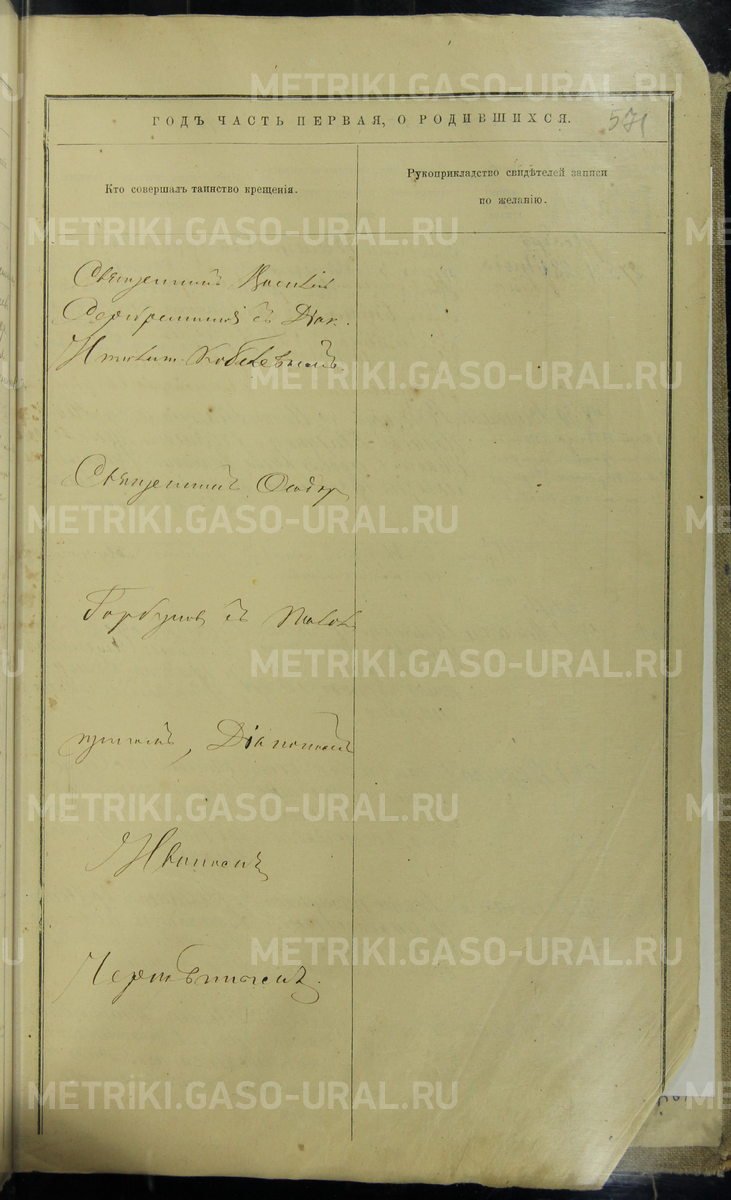 METRIKI.GASO-URAL.RU
ГОДЪ ЧАСТЬ ПЕРВАЯ, О РОДИВШИХСЯ.
571
Кто совершалъ таинство крещенія.
Рукоприкладство свидѣтелей записи
по желанію.
METRIKI.GASO-URAL.RU
Священникъ Василій
Серебренниковъ съ Діак.
METRIKI.GASO-URAL.RU
Священникъ Ѳеодоръ
METRIKI.GASO-URAL.RU
Горбуновъ съ
METRIKI.GASO-URAL.RU
Діакономъ
METRIKI.GASO-URAL.RU
Иваномъ
METRIKI.GASO-URAL.RU
METRIKI.GASO-URAL.RU